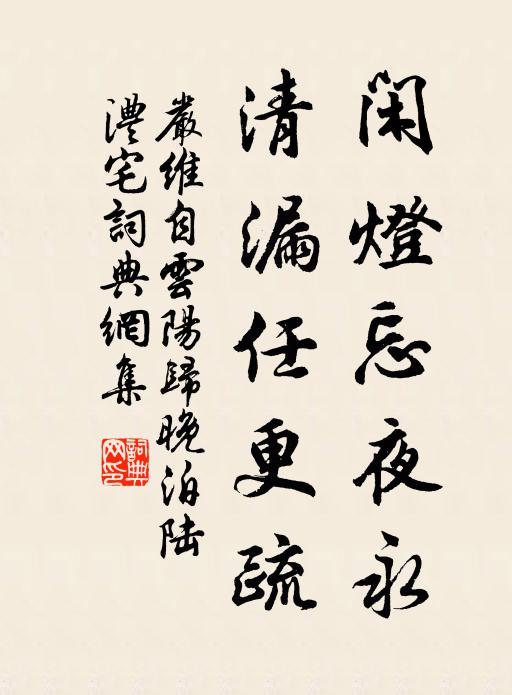 閑燈忘夜永
清漏任更疏
嚴維自雲陽歸晚泊陆
澧宅詞典網集
詞典
网印